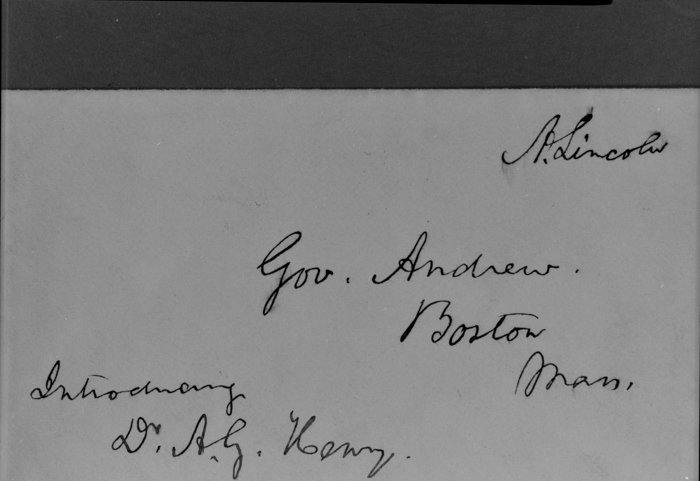 A. Lincoln
Gov. Andrew.
Boston
Mass.
Introducing
Dr. A. G. Henry.